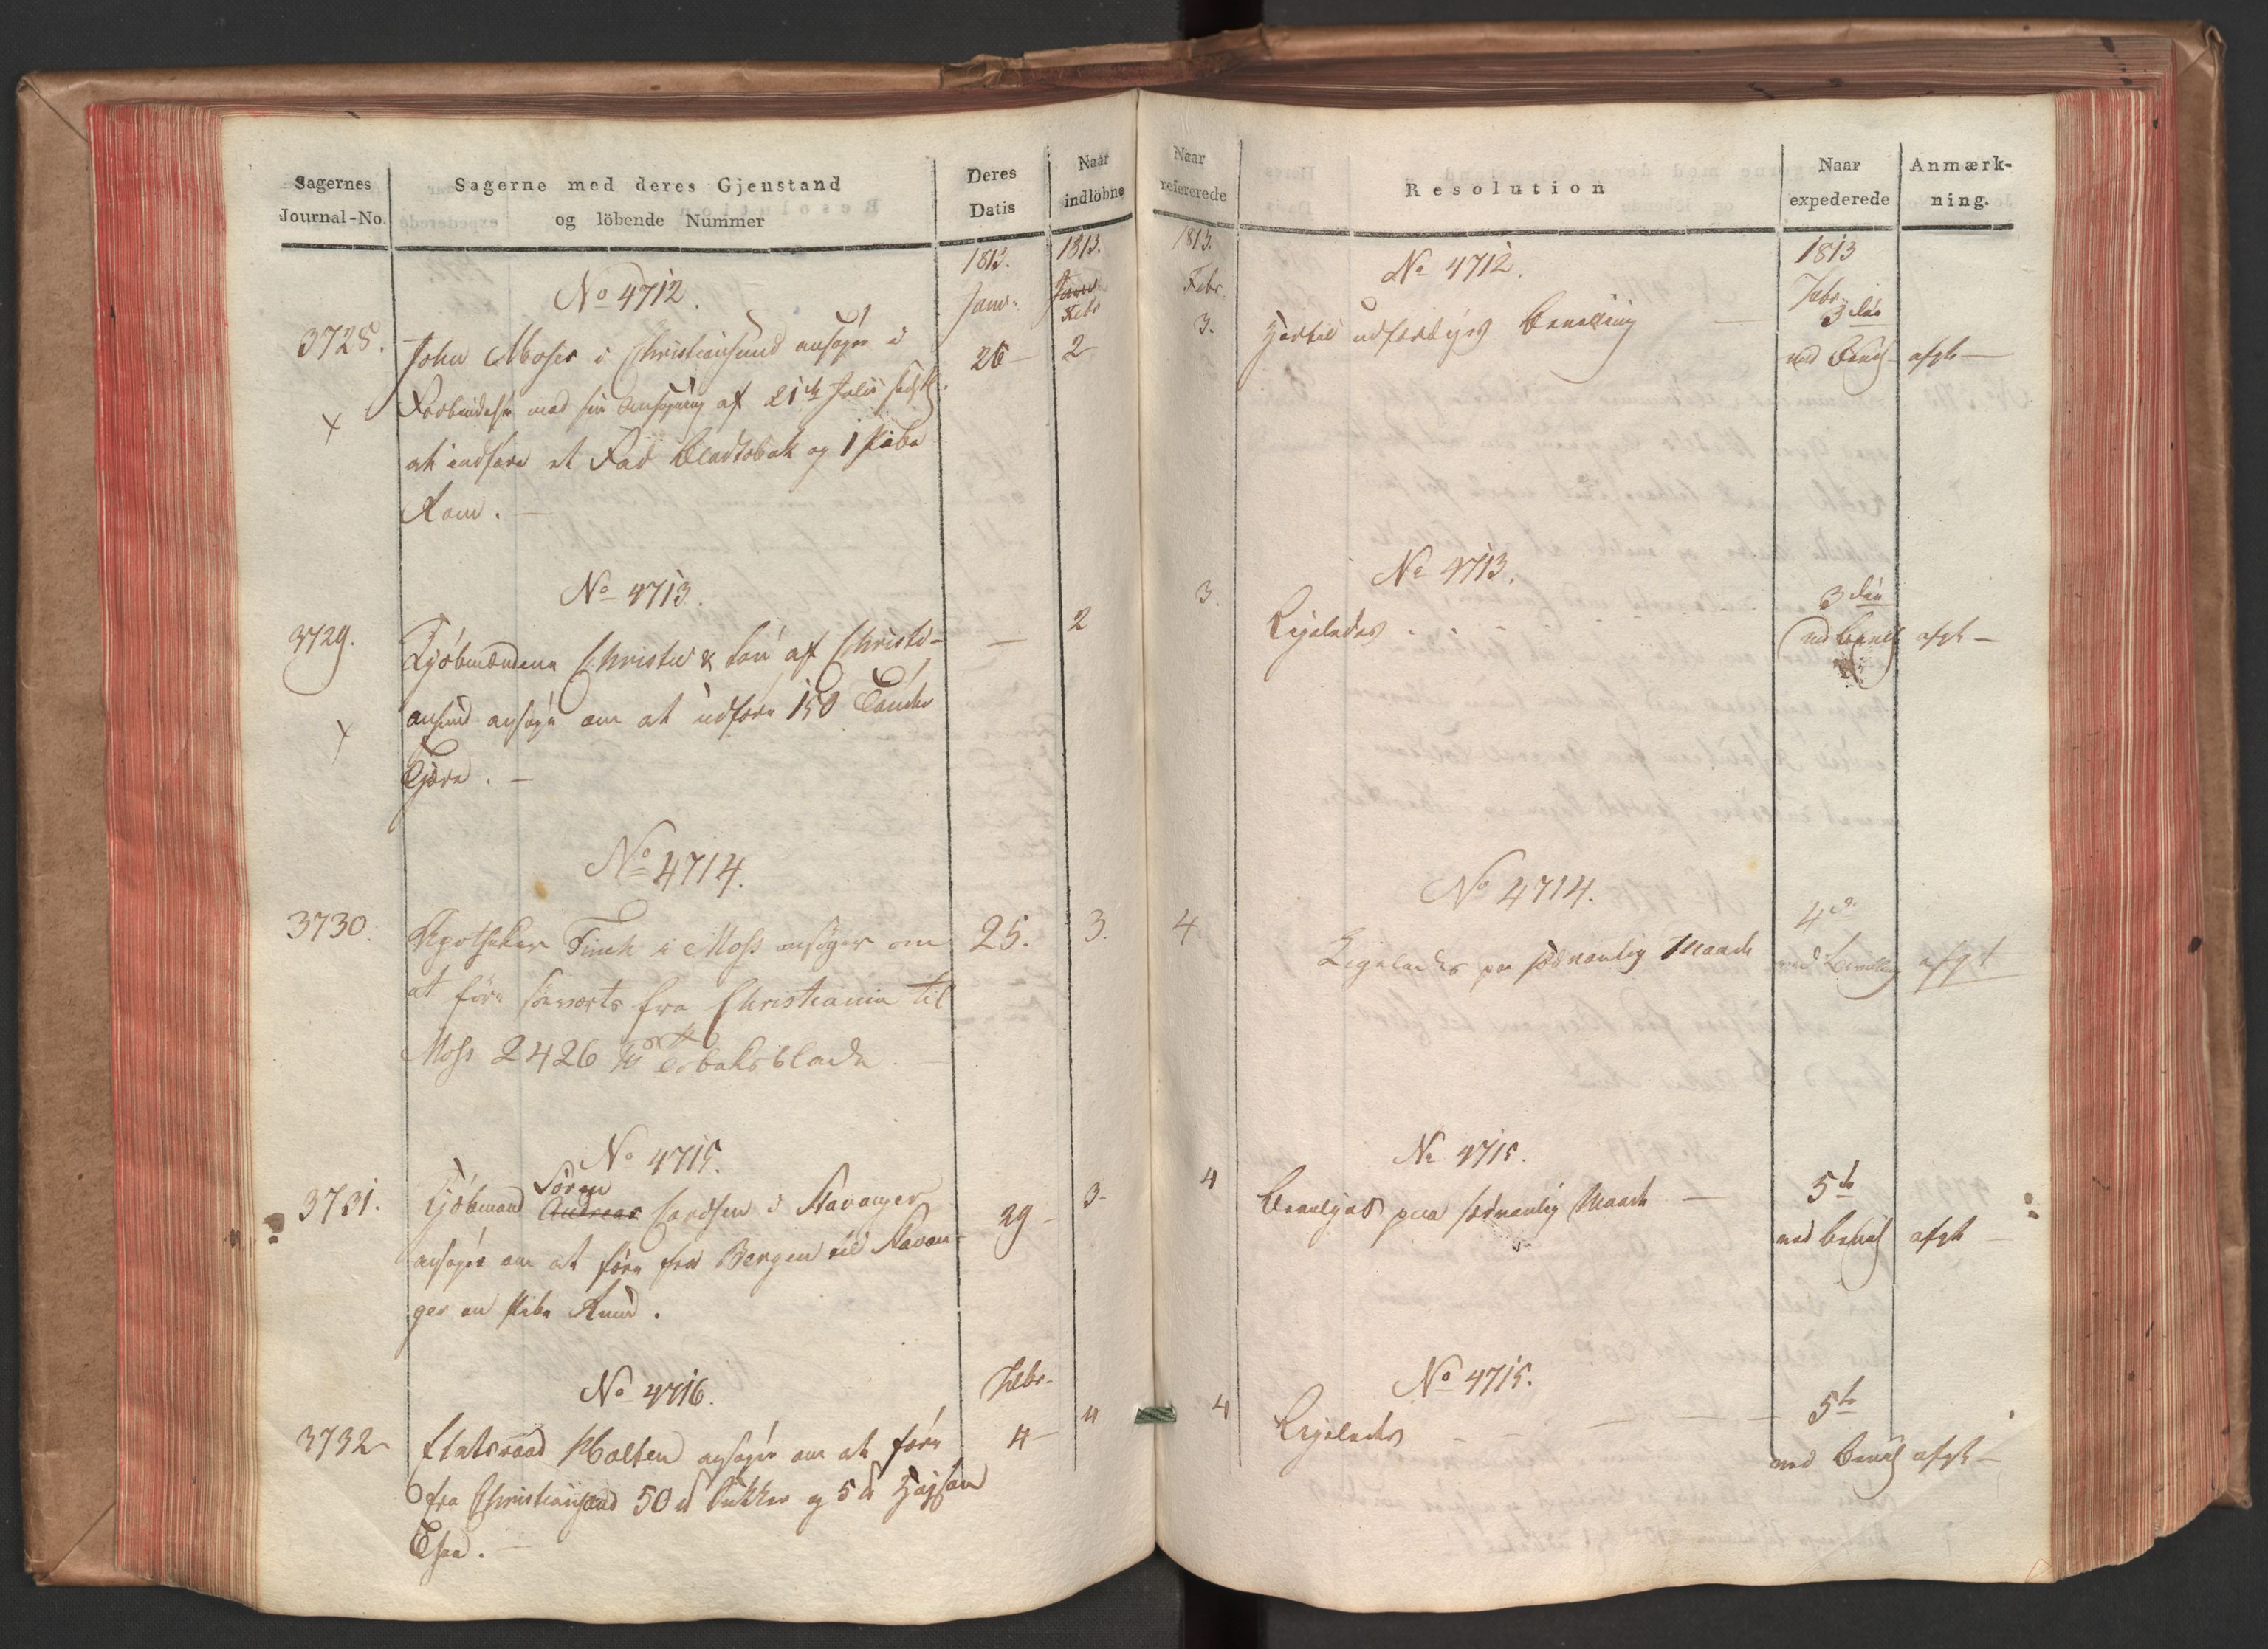 Sagernes
Journal-No.
Sagerne med deres Gjenstand
og löbende Nummer
Deres
Datis
Naar
indlöbne
1813.
1813.
No 4712.
Janr.
Janr
Febr
3728.
John Moses i Christiansund ansøger i
26 —
2
Forbindelse med sin Ansøgning af 21de Julii
at indføre et Fad Bladtobak og 1 Pibe
Rom. —
No 4713.
3729.
Kjøbmændene Christie & Søn af Christi-
—
2
ansund ansøge om at udføre 150 Tønder
Tjære. —
No 4714.
3730.
Apotheker Finck i Moss ansöger om
25.
3.
at före söeværts fra Christiania til
Moss 2426 tt Tobaksblade
No 4715.
Sören
3731.
Kjøbmand Andreas i Stavanger
29 —
3-
ansøger om at føre fra Bergen til Stavan-
ger en Pibe Rum.
No 4716.
Febr.
3732
Etatsraad Holten ansøger om at føre
4 —
4
fra Christiansand 50 tt Sukker og 5 tt Hajsan
Thee. —
Naar
refererede
Resolution
Naar
expederede
Anmærk-
ning.
1813.
1813
Febr.
No 4712.
Febr
3.
Hertil udfærdiges Bevilling —
3die
med Bevill
afgk —
No 4713.
3.
Ligeledes . . .
3die
med Bevill
afgk —
No 4714.
4.
Ligeledes paa sædvanlig Maade
4de
med Bevilling
afgt
No 4715.
4
Bevilges paa sædvanlig Maade —
5te
med Bevill
afgk —
No 4715.
4
Ligeledes — — —
5te
med Bevill
afgk —